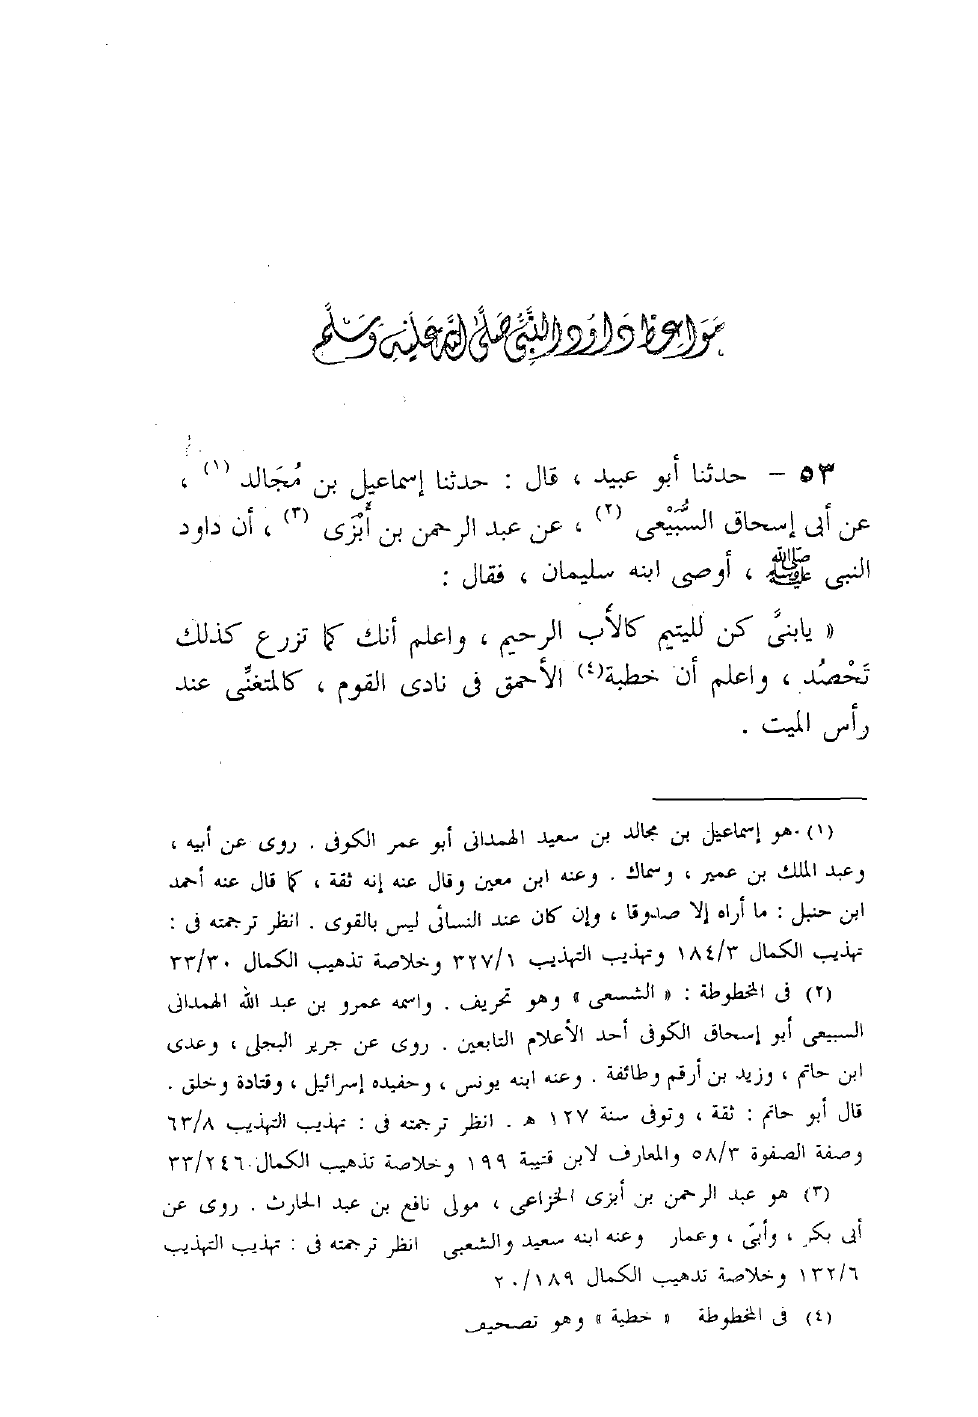 مَوَاعِظُ دَاوُدَ النَّبِيِّ صَلَّى اللهُ عَلَيْهِ وَسَلَّمَ
٥٣ – حدثنا أبو عبيد ، قال : حدثنا إسماعيل بن مُجَالد (١) ،
عن أبى إسحاق السَّبَيْعى (٢) ، عن عبد الرحمن بن أَبْزَى (٣) ، أن داود
النبى ﷺ ، أوصى ابنه سليمان ، فقال :
« يابنىَّ كن لليتيم كالأب الرحيم ، واعلم أنك كما تزرع كذلك
تَحْصُد ، واعلم أن خطبة(٤) الأحمق فى نادى القوم ، كالمتغنِّى عند
رأس الميت .
(١) هو إسماعيل بن مجالد بن سعيد الهمدانى أبو عمر الكوفى . روى عن أبيه ،
وعبد الملك بن عمير ، وسماك . وعنه ابن معين وقال عنه إنه ثقة ، كما قال عنه أحمد
ابن حنبل : ما أراه إلا صدوقا ، وإن كان عند النسائى ليس بالقوى . انظر ترجمته فى :
تهذيب الكمال ١٨٤/٣ وتهذيب التهذيب ٣٢٧/١ وخلاصة تذهيب الكمال ٣٣/٣٠
(٢) فى المخطوطة : « الشسعى » وهو تحريف . واسمه عمرو بن عبد الله الهمدانى
السبيعى أبو إسحاق الكوفى أحد الأعلام التابعين . روى عن جرير البجلى ، وعدى
ابن حاتم ، وزيد بن أرقم وطائفة . وعنه ابنه يونس ، وحفيده إسرائيل ، وقتادة وخلق .
قال أبو حاتم : ثقة ، وتوفى سنة ١٢٧ هـ . انظر ترجمته فى : تهذيب التهذيب ٦٣/٨
وصفة الصفوة ٥٨/٣ والمعارف لابن قتيبة ١٩٩ وخلاصة تذهيب الكمال ٣٣/٢٤٦
(٣) هو عبد الرحمن بن أبزى الخزاعى ، مولى نافع بن عبد الحارث . روى عن
أبى بكر ، وأبىّ ، وعمار وعنه ابنه سعيد والشعبى انظر ترجمته فى : تهذيب التهذيب
١٣٢/٦ وخلاصة تذهيب الكمال ٢٠/١٨٩
(٤) فى المخطوطة « خطية » وهو تصحيف